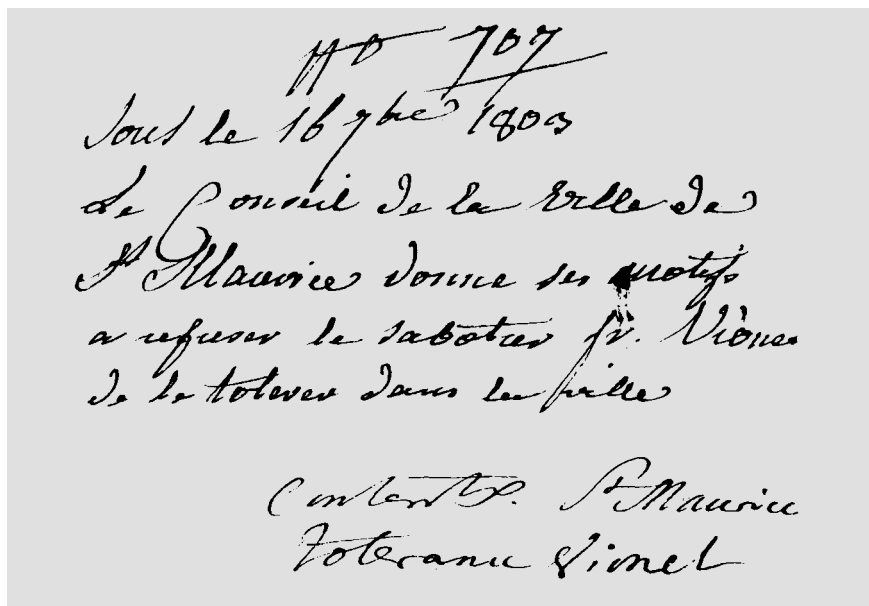 N° 707
Sous le 16 7bre 1803
Le Conseil de la Ville de
St Maurice donne ses motifs
a refuser le sabotier fr. Viône
de le tolerer dans la ville
Content x. St Maurice
Tolerance Vionet